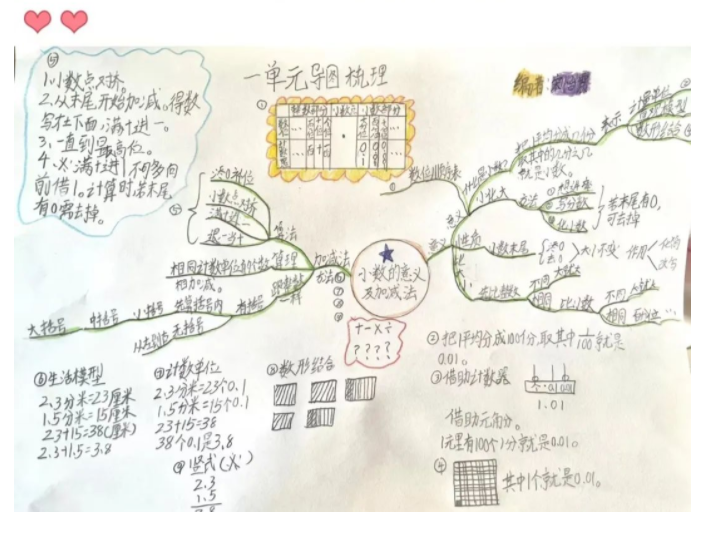 一单元导图梳理
编者:
⑤
1.小数点对齐。
2.从末尾开始加减。得数
写在下面,满十进一。
3.一直到最高位。
4.
前借1。计算时若末尾
有0需去掉。
①
整数部分 小数点 小数部分
数位顺序表
添0补位
小数点对齐
满十进一
退一当十
算法
相同计数单位的个数
相加减。
算理
加减法
大括号 中括号 小括号 先算括号内 有括号
从左到右 无括号
小数的意义
及加减法
+-×÷
? ? ? ?
意义
什么是小数
把1平均分成10份
取其中的几分之几
就是小数。
表示
计数单位
数形结合
方法
写分数
若末尾有0,
可去掉
小数末尾
添0
去0
大小不变
作用
化简
改写
不同
相同
比小数
不同
相同
②把1平均分成100份,取其中1/100就是
0.01。
③借助计数器
1.01
借助元角分。
1元里有100个1分就是0.01。
④
其中1个就是0.01。
⑥生活模型
2.3分米=23厘米
1.5分米=15厘米
23+15=38(厘米)
2.3+1.5=3.8
⑦计数单位
2.3分米=23个0.1
1.5分米=15个0.1
23+15=38
38个0.1是3.8
⑧数形结合
⑨竖式
2.3
1.5
3.8